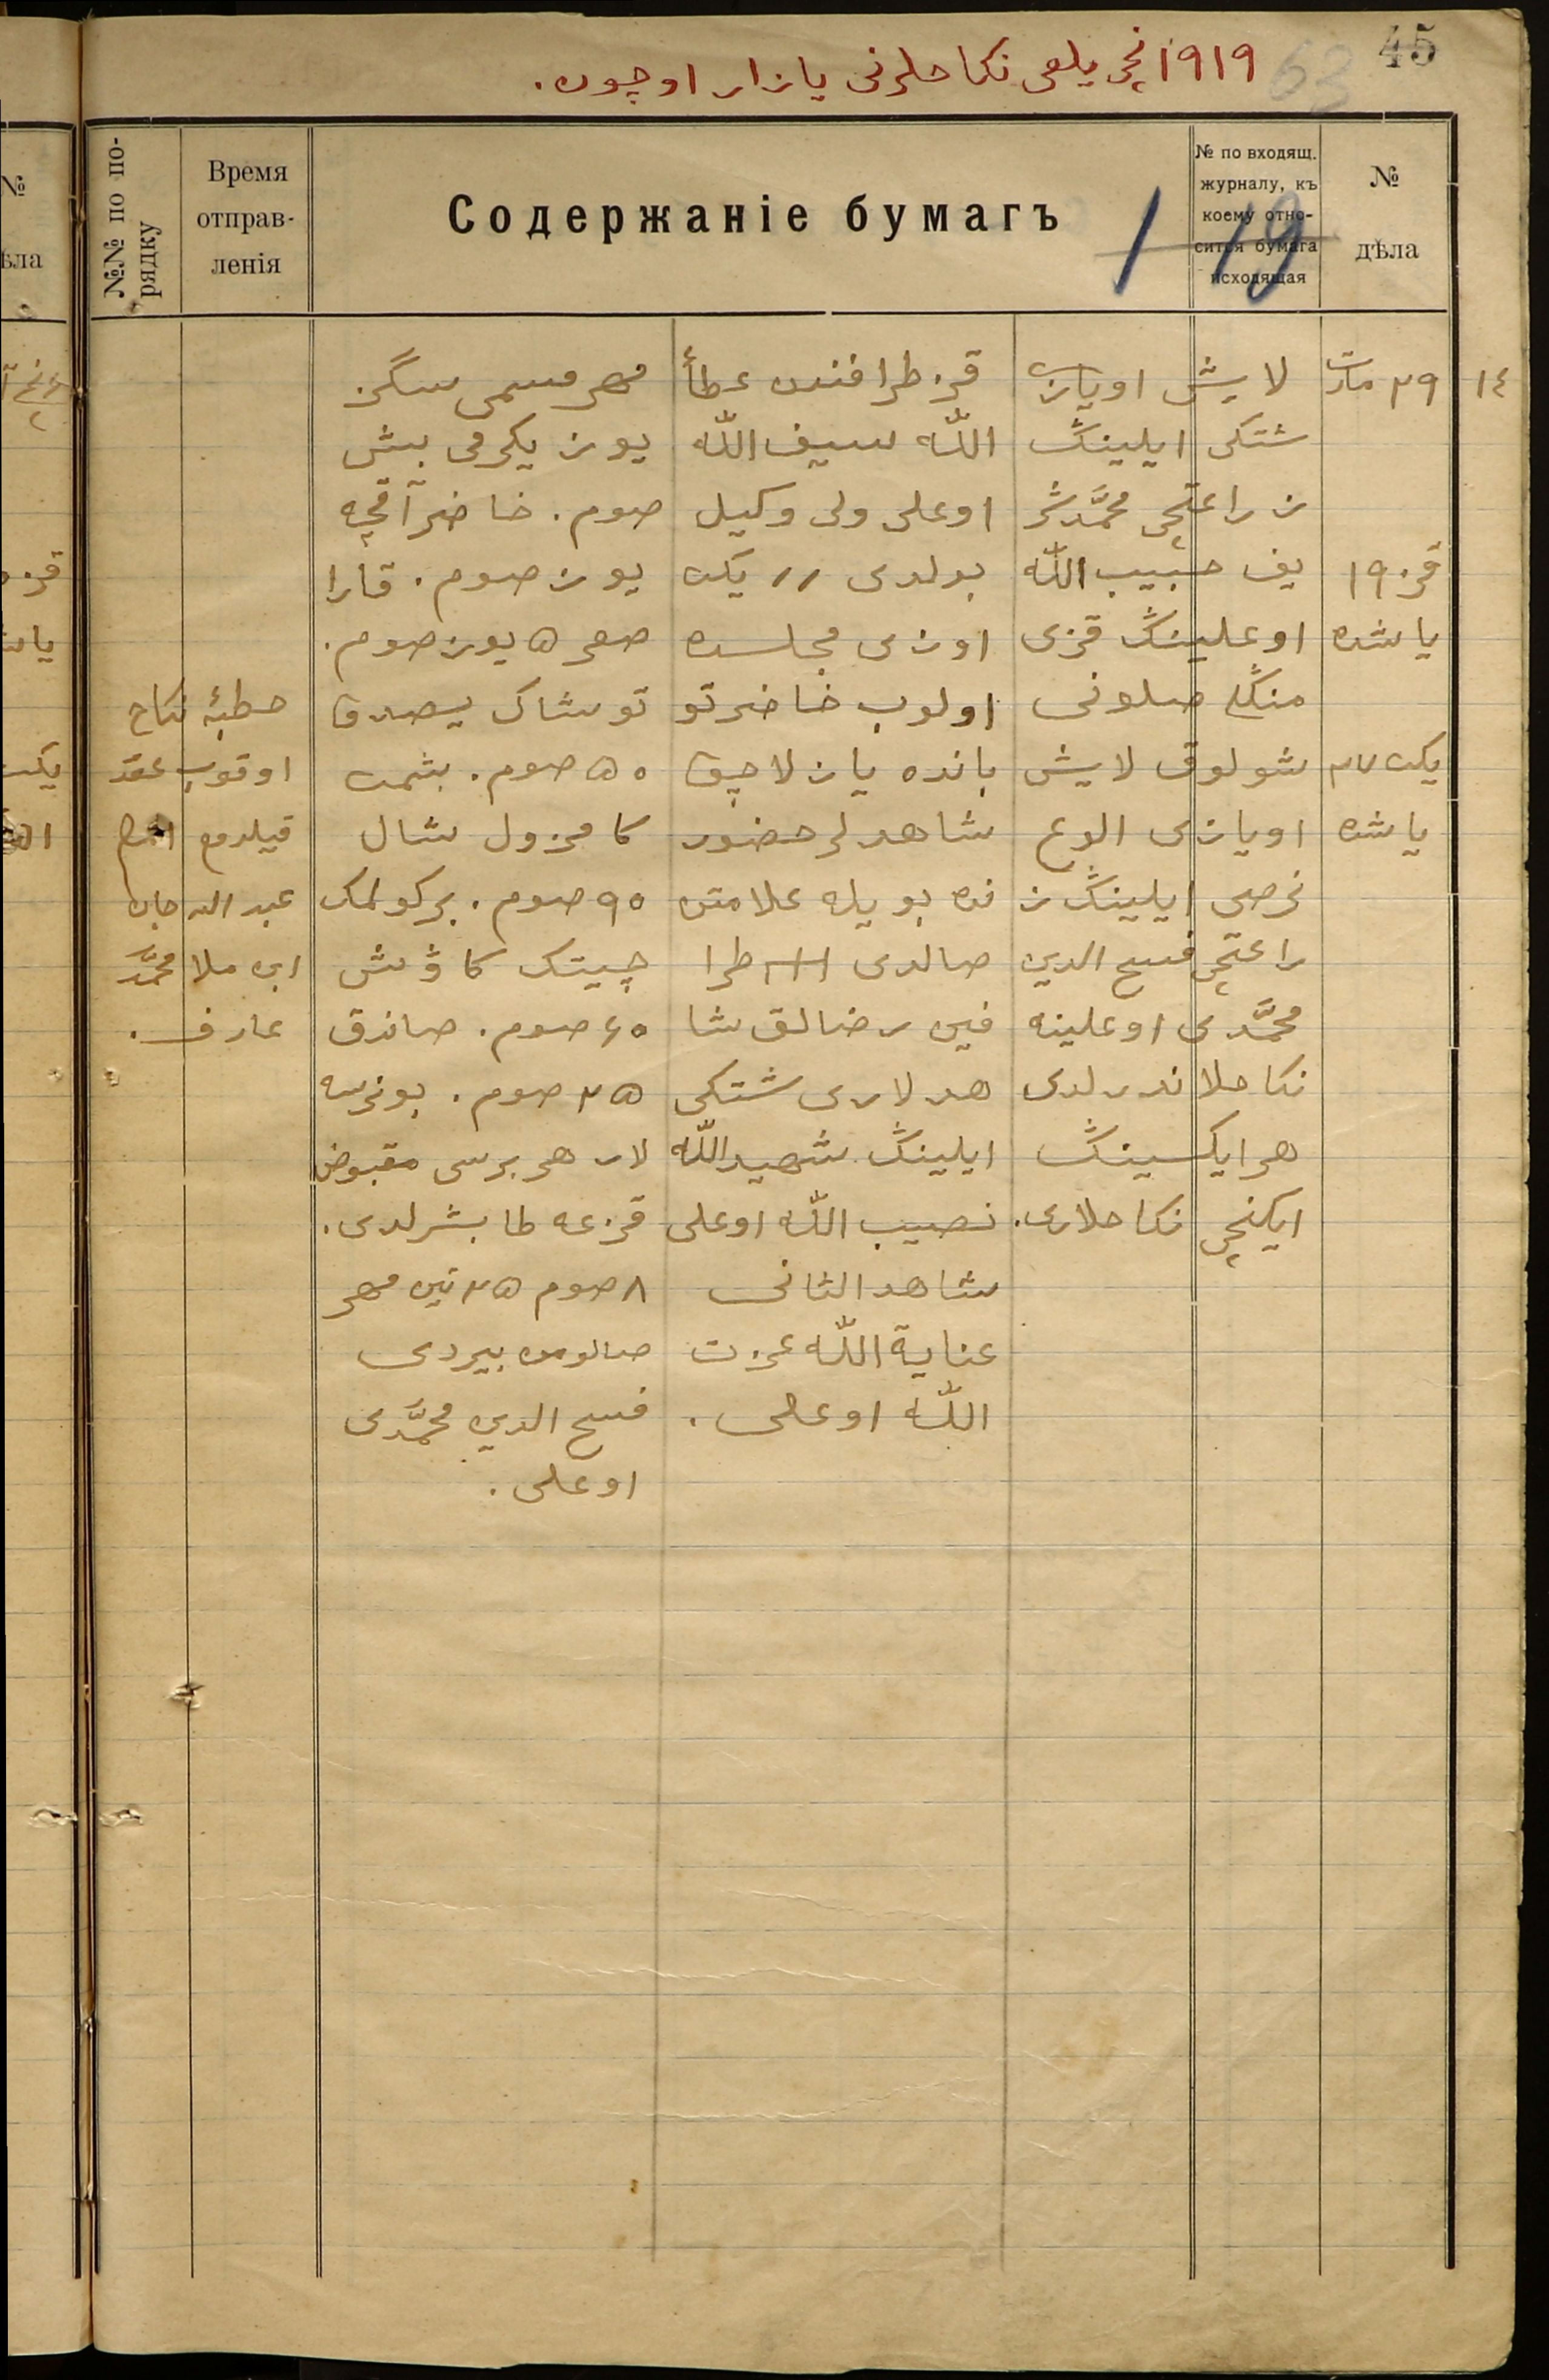 45
63
١٩١٩نچی یلغی نکاحلرنی یازار اوچون.
№№ по по-
рядку
Время
отправ-
ленія
Содержаніе бумагъ
№ по входящ.
журналу, къ
коему отно-
сится бумага
исходящая
№
дѣла
1 19
١٤
٢٩ مارت
قز ١٩
یاشده
یکت ٢٧
یاشده
لایش اویازی
شتکی ایلینڭ
زراعتچی محمّدشر
یف حبیب اللّٰه
اوغلینڭ قزی
منڭلی صلونی
شولوق لایش
اویازی الوغ
نرصی ایلینڭ ز
راعتچی فسح الدین
محمّدی اوغلینه
نکاحلاندرلدی
هر ایکسینڭ
ایکنچی نکاحلاری.
قز طرافندن عطأ
اللّٰه سیف اللّٰه
اوغلی ولی وکیل
بولدی // یکت
اوزی مجلسده
اولوب خاضر تو
بانده یازلاچق
شاهدلر حضور
نده بویله علامتن
صالدی III طرا
فین رضالق شا
هدلاری شتکی
ایلینڭ شهیداللّٰه
نصیب اللّٰه اوغلی
شاهد الثانی
عنایة اللّٰه عزت
اللّٰه اوغلی.
مهر مسمی سڭز
یوز یکرمی بش
صوم. خاضر آقچه
یوز صوم. قارا
صغر ٥ یوز صوم.
توشاک یصدق
٥٠ صوم. بشمت
کامزول شال
٩٥ صوم. برکولمک
چیتک کاوش
٤٥ صوم. صاندق
٢٥ صوم. بونرسه
لار هر برسی مقبوض
قزعه طابشرلدی.
٨ صوم ٢٥ تین مهر
صالومن بیردی
فسح الدین محمّدی
اوغلی.
خطبهٔ نکاح
اوقوب عقد
قیلدم امام
عبد الله جان
ابن ملا محمّد
عارف.
№
ѣла
قز
یاش
یکت